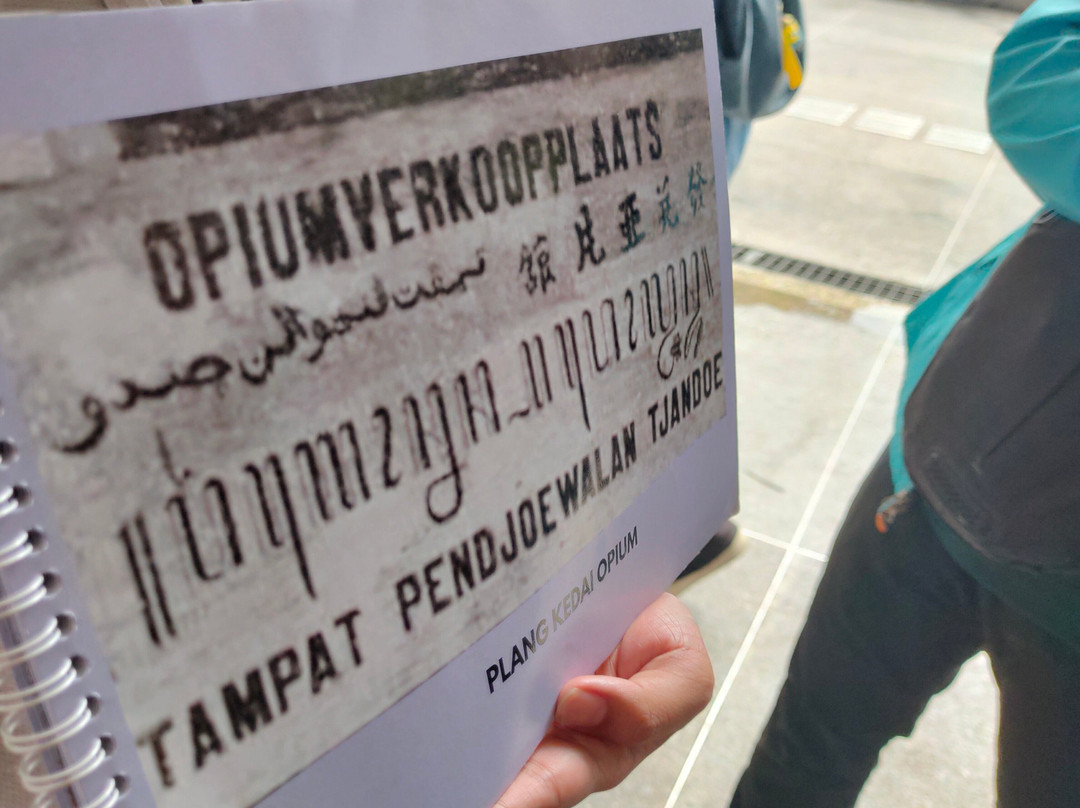 OPIUMVERKOOPPLAATS
發兌亞片館
تمفت فنجوالن چندو
TAMPAT PENDJOEWALAN TJANDOE
PLANG KEDAI OPIUM